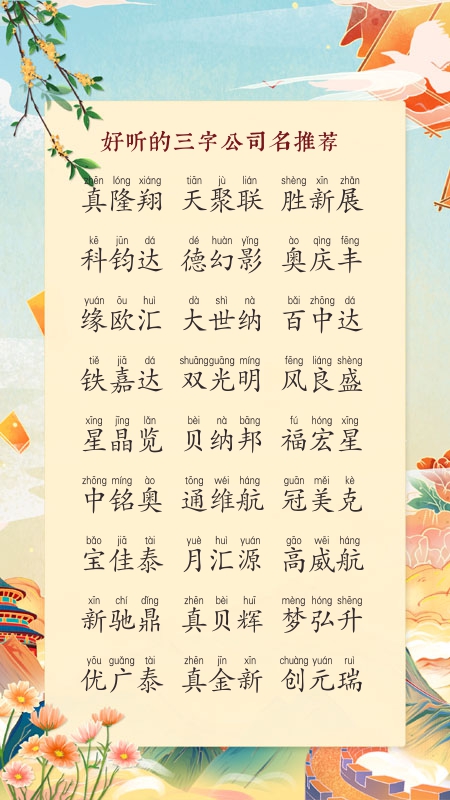 好听的三字公司名推荐
zhēn lóng xiáng tiān jù lián shèng xīn zhǎn
真隆翔 天聚联 胜新展
kē jūn dá dé huàn yǐng ào qìng fēng
科钧达 德幻影 奥庆丰
yuán ōu huì dà shì nà bǎi zhōng dá
缘欧汇 大世纳 百中达
tiě jiā dá shuāng guāng míng fēng liáng shèng
铁嘉达 双光明 风良盛
xīng jīng lǎn bèi nà bāng fú hóng xīng
星晶览 贝纳邦 福宏星
zhōng míng ào tōng wéi háng guān měi kè
中铭奥 通维航 冠美克
bǎo jiā tài yuè huì yuán gāo wēi háng
宝佳泰 月汇源 高威航
xīn chí dǐng zhēn bèi huī mèng hóng shēng
新驰鼎 真贝辉 梦弘升
yōu guǎng tài zhēn jīn xīn chuàng yuán ruì
优广泰 真金新 创元瑞